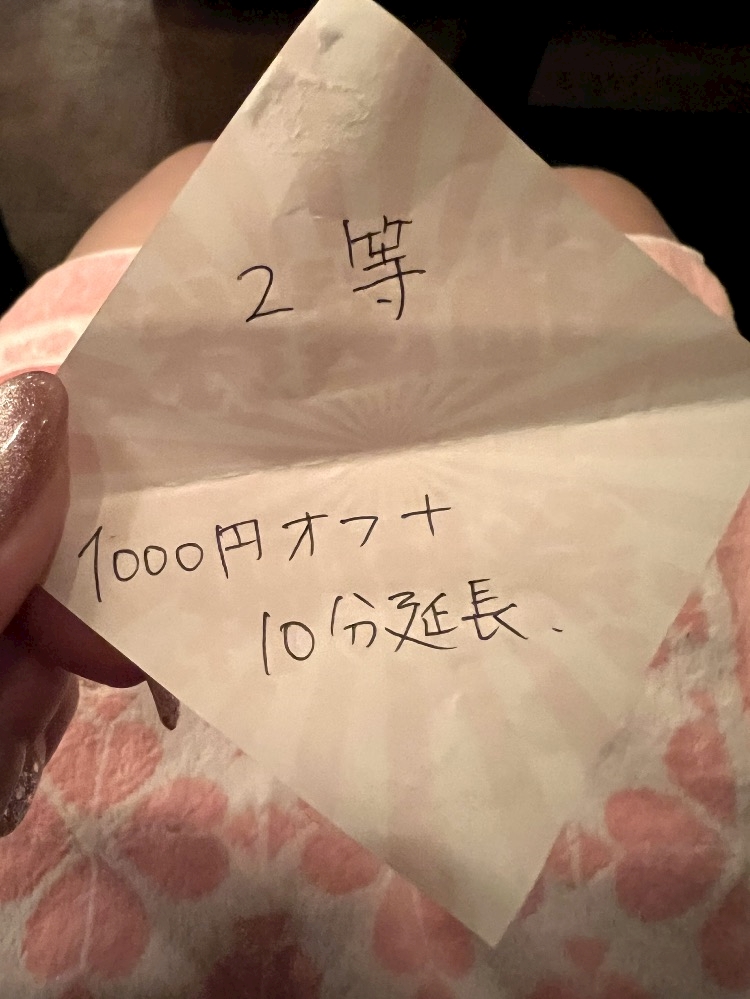 2 等
1000円オフ+
10分延長、